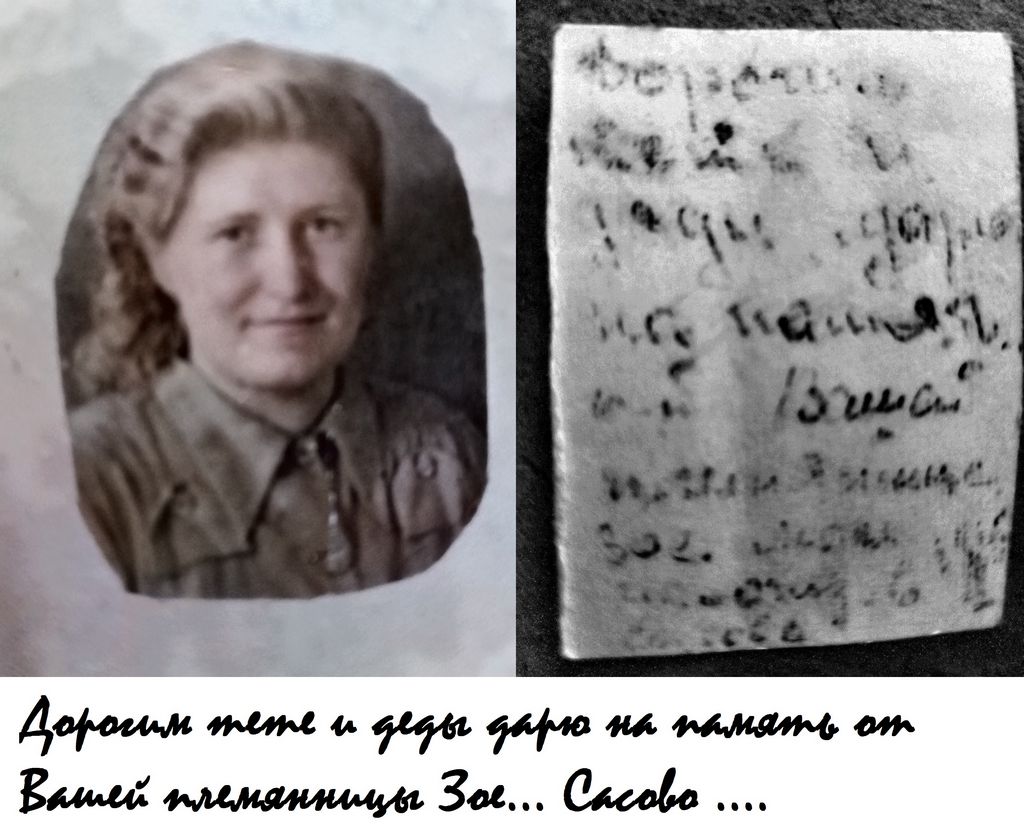 Дорогим
и
деды дарю
на память
от Вашей
племянницы
Зое.
Дорогим тете и деды дарю на память от
Вашей племянницы Зое... Сасово ....